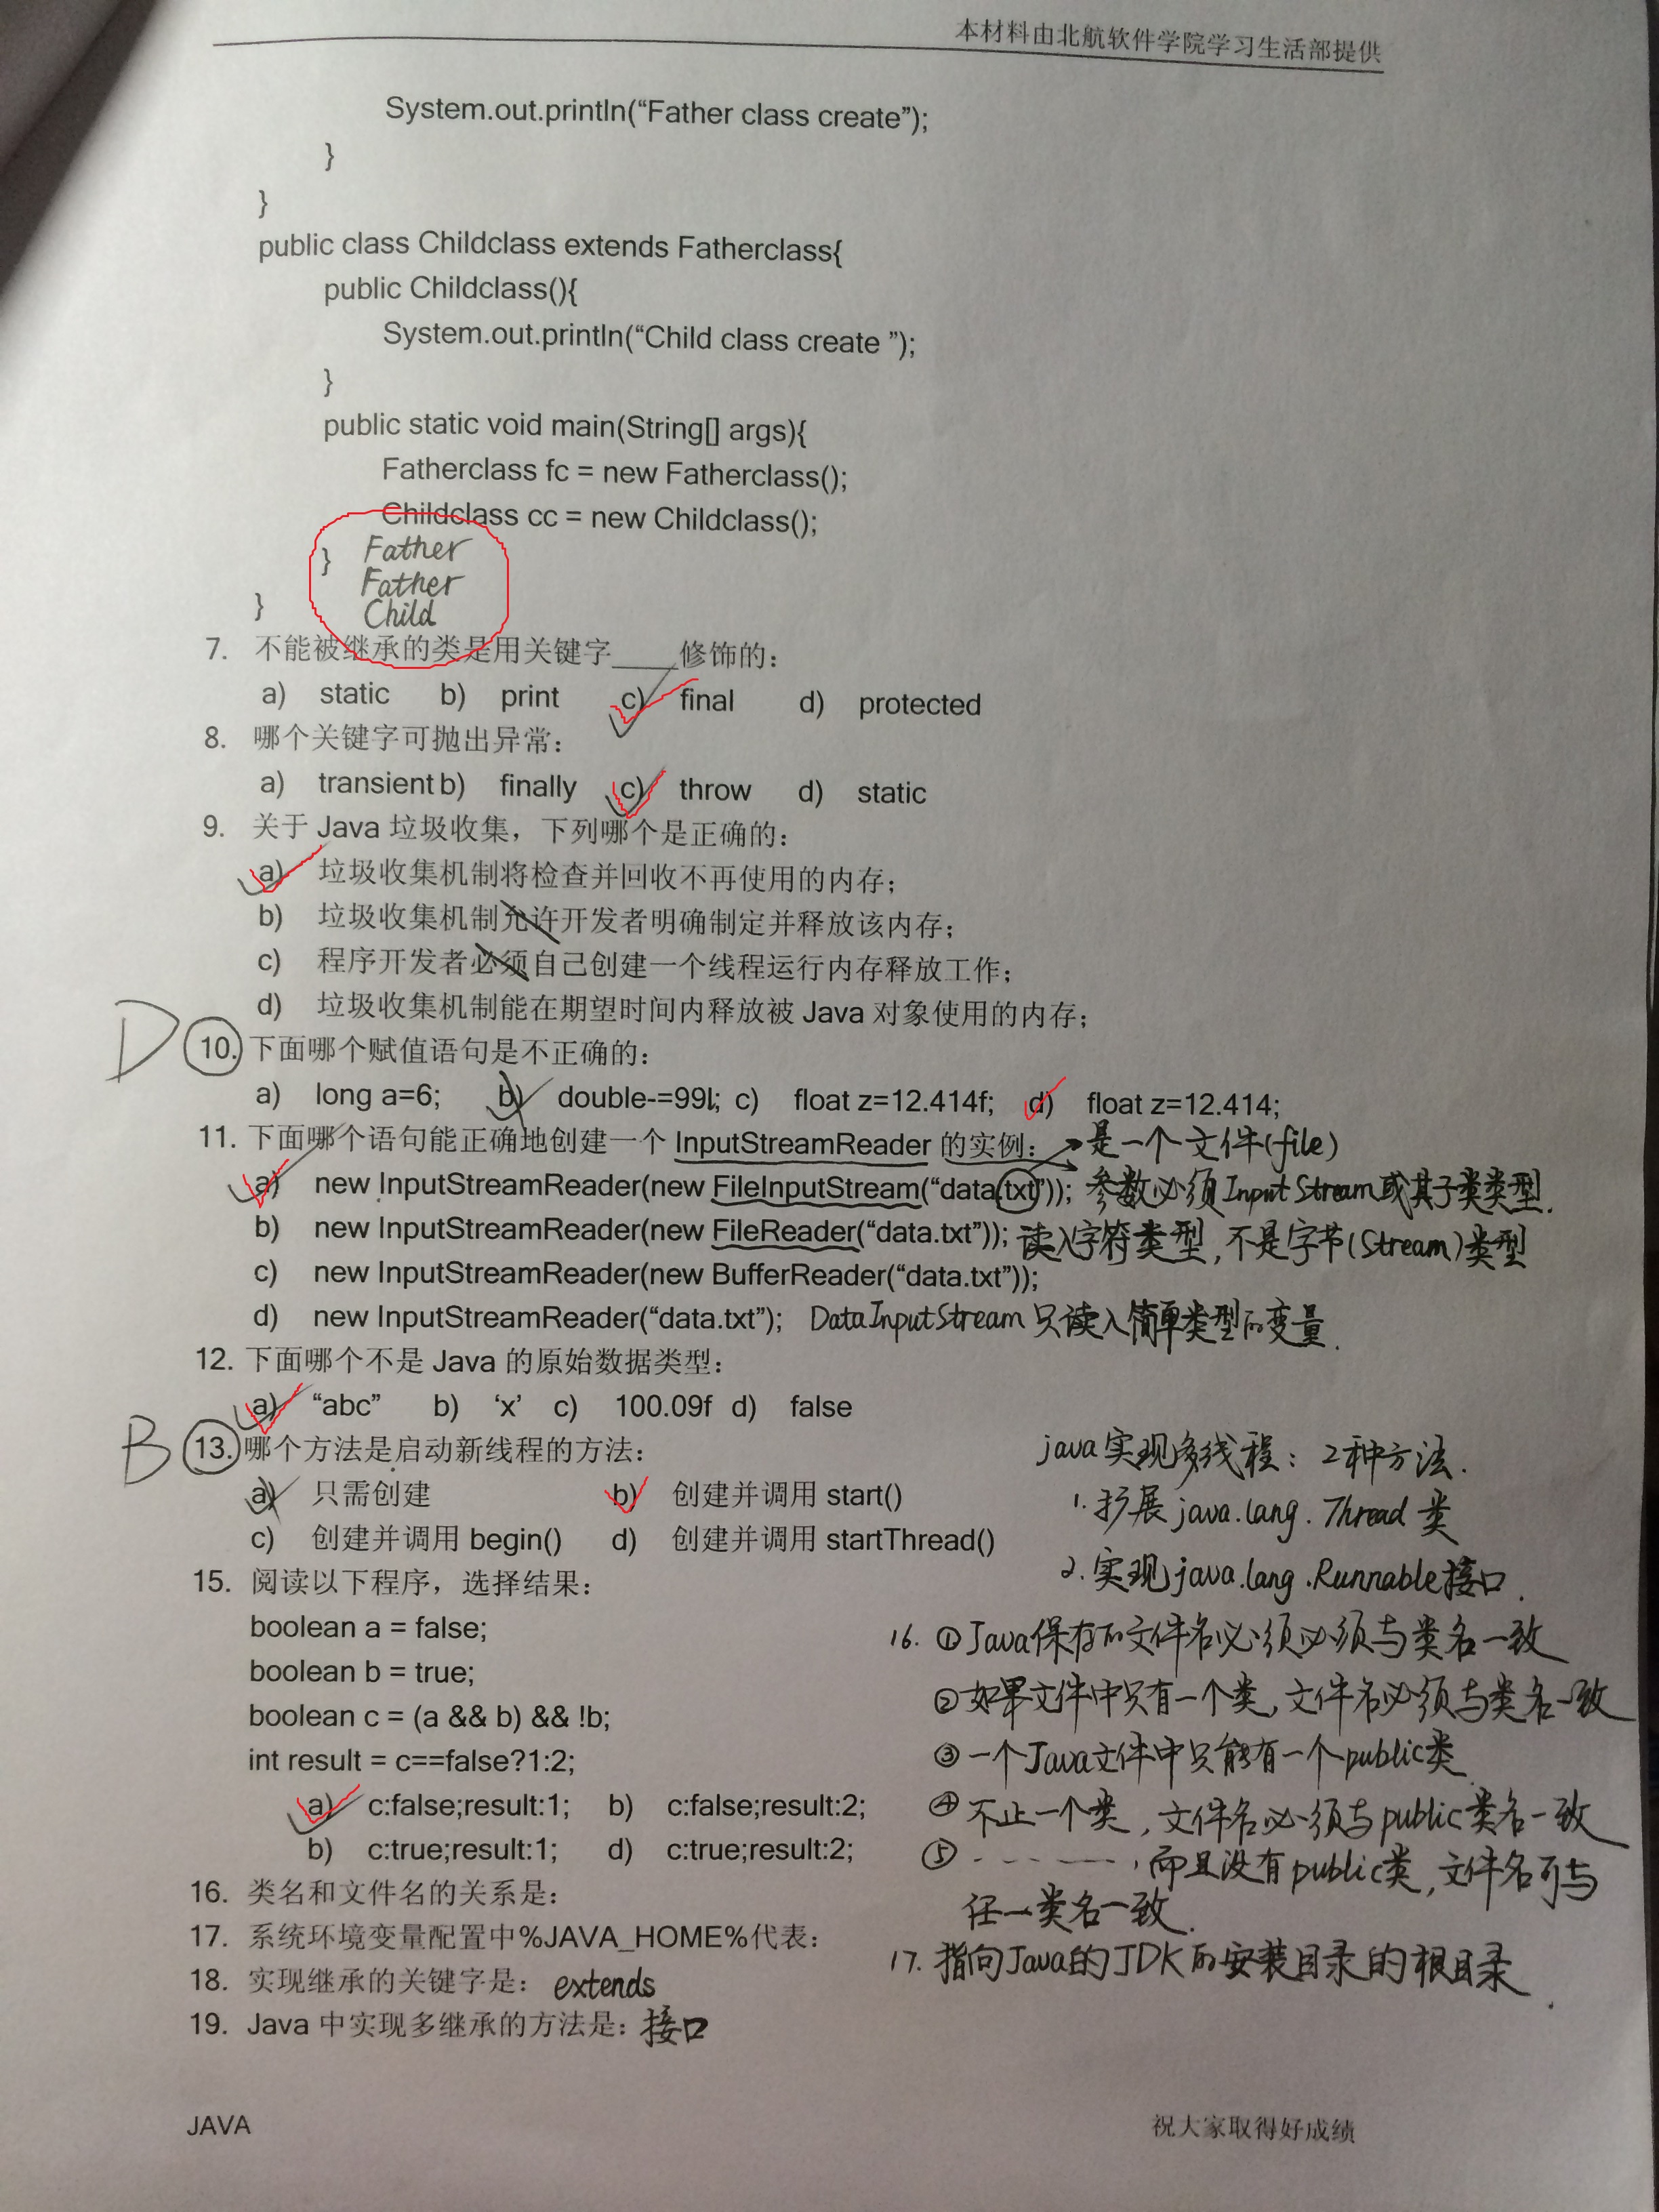 本材料由北航软件学院学习生活部提供
System.out.println(“Father class create”);
}
}
public class Childclass extends Fatherclass{
public Childclass(){
System.out.println(“Child class create ”);
}
public static void main(String[] args){
Fatherclass fc = new Fatherclass();
Childclass cc = new Childclass();
} Father
Father
} Child
7. 不能被继承的类是用关键字____修饰的：
a) static b) print c) final d) protected
8. 哪个关键字可抛出异常：
a) transient b) finally c) throw d) static
9. 关于 Java 垃圾收集，下列哪个是正确的：
a) 垃圾收集机制将检查并回收不再使用的内存；
b) 垃圾收集机制允许开发者明确制定并释放该内存；
c) 程序开发者必须自己创建一个线程运行内存释放工作；
d) 垃圾收集机制能在期望时间内释放被 Java 对象使用的内存；
D 10. 下面哪个赋值语句是不正确的：
a) long a=6; b) double-=99l; c) float z=12.414f; d) float z=12.414;
11. 下面哪个语句能正确地创建一个 InputStreamReader 的实例： 是一个文件(file)
a) new InputStreamReader(new FileInputStream(“data.txt”)); 参数必须InputStream或其子类类型.
b) new InputStreamReader(new FileReader(“data.txt”)); 读入字符类型,不是字节(Stream)类型
c) new InputStreamReader(new BufferReader(“data.txt”));
d) new InputStreamReader(“data.txt”); DataInputStream只读入简单类型的变量.
12. 下面哪个不是 Java 的原始数据类型：
a) “abc” b) ‘x’ c) 100.09f d) false
B 13. 哪个方法是启动新线程的方法：
java实现多线程：2种方法.
a) 只需创建 b) 创建并调用 start()
1.扩展java.lang.Thread类
c) 创建并调用 begin() d) 创建并调用 startThread()
2.实现java.lang.Runnable接口.
15. 阅读以下程序，选择结果：
boolean a = false;
boolean b = true;
boolean c = (a && b) && !b;
int result = c==false?1:2;
a) c:false;result:1; b) c:false;result:2;
b) c:true;result:1; d) c:true;result:2;
16. ①Java保存的文件名必须必须与类名一致
②如果文件中只有一个类,文件名必须与类名一致
③一个Java文件中只能有一个public类
④不止一个类,文件名必须与public类名一致
⑤-----,而且没有public类,文件名可与
任一类名一致.
16. 类名和文件名的关系是：
17. 系统环境变量配置中%JAVA_HOME%代表：
17. 指向Java的JDK的安装目录的根目录.
18. 实现继承的关键字是： extends
19. Java 中实现多继承的方法是：接口
JAVA 祝大家取得好成绩